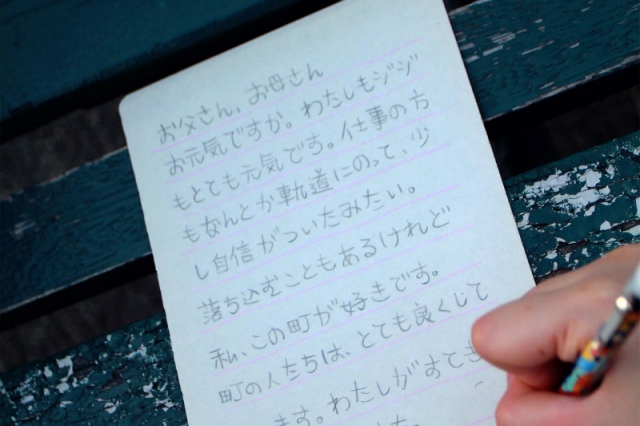 お父さん、お母さん
お元気ですか。わたしもジジ
もとても元気です。仕事の方
もなんとか軌道にのって、少
し自信がついたみたい。
落ち込むこともあるけれど
私、この町が好きです。
町の人たちは、とても良くして
ます。わたしがすても
た。